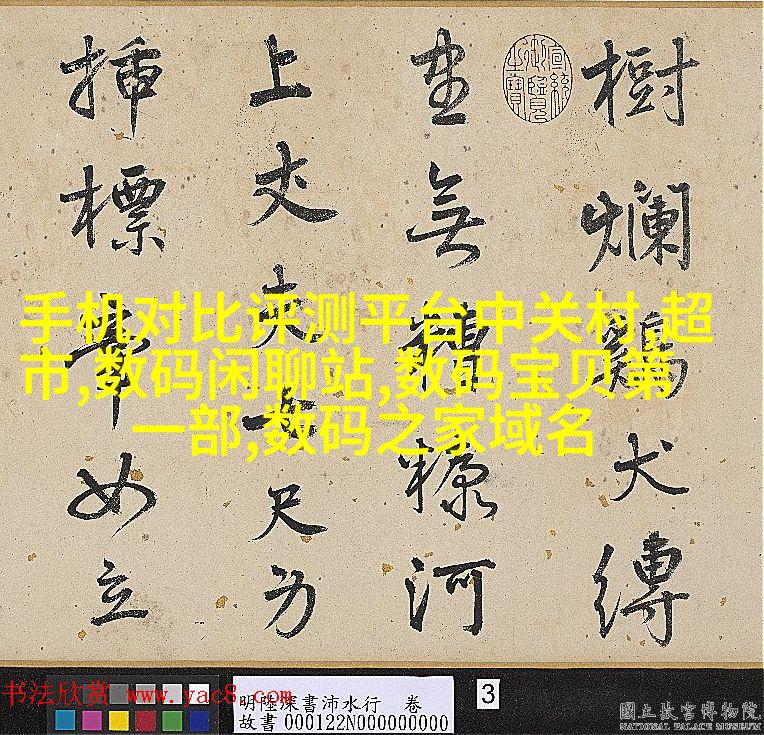 樹爛鷄犬縛
無糠河
上丈夫尺
插標如立
宣統御覽之寶
手机对比评测平台中关村,超
市,数码闲聊站,数码宝贝第
一部,数码之家域名
书法欣赏 www.yac8.com
明陸深書沛水行 卷
故書 000122N000000000
3
國立故宮博物院
NATIONAL PALACE MUSEUM